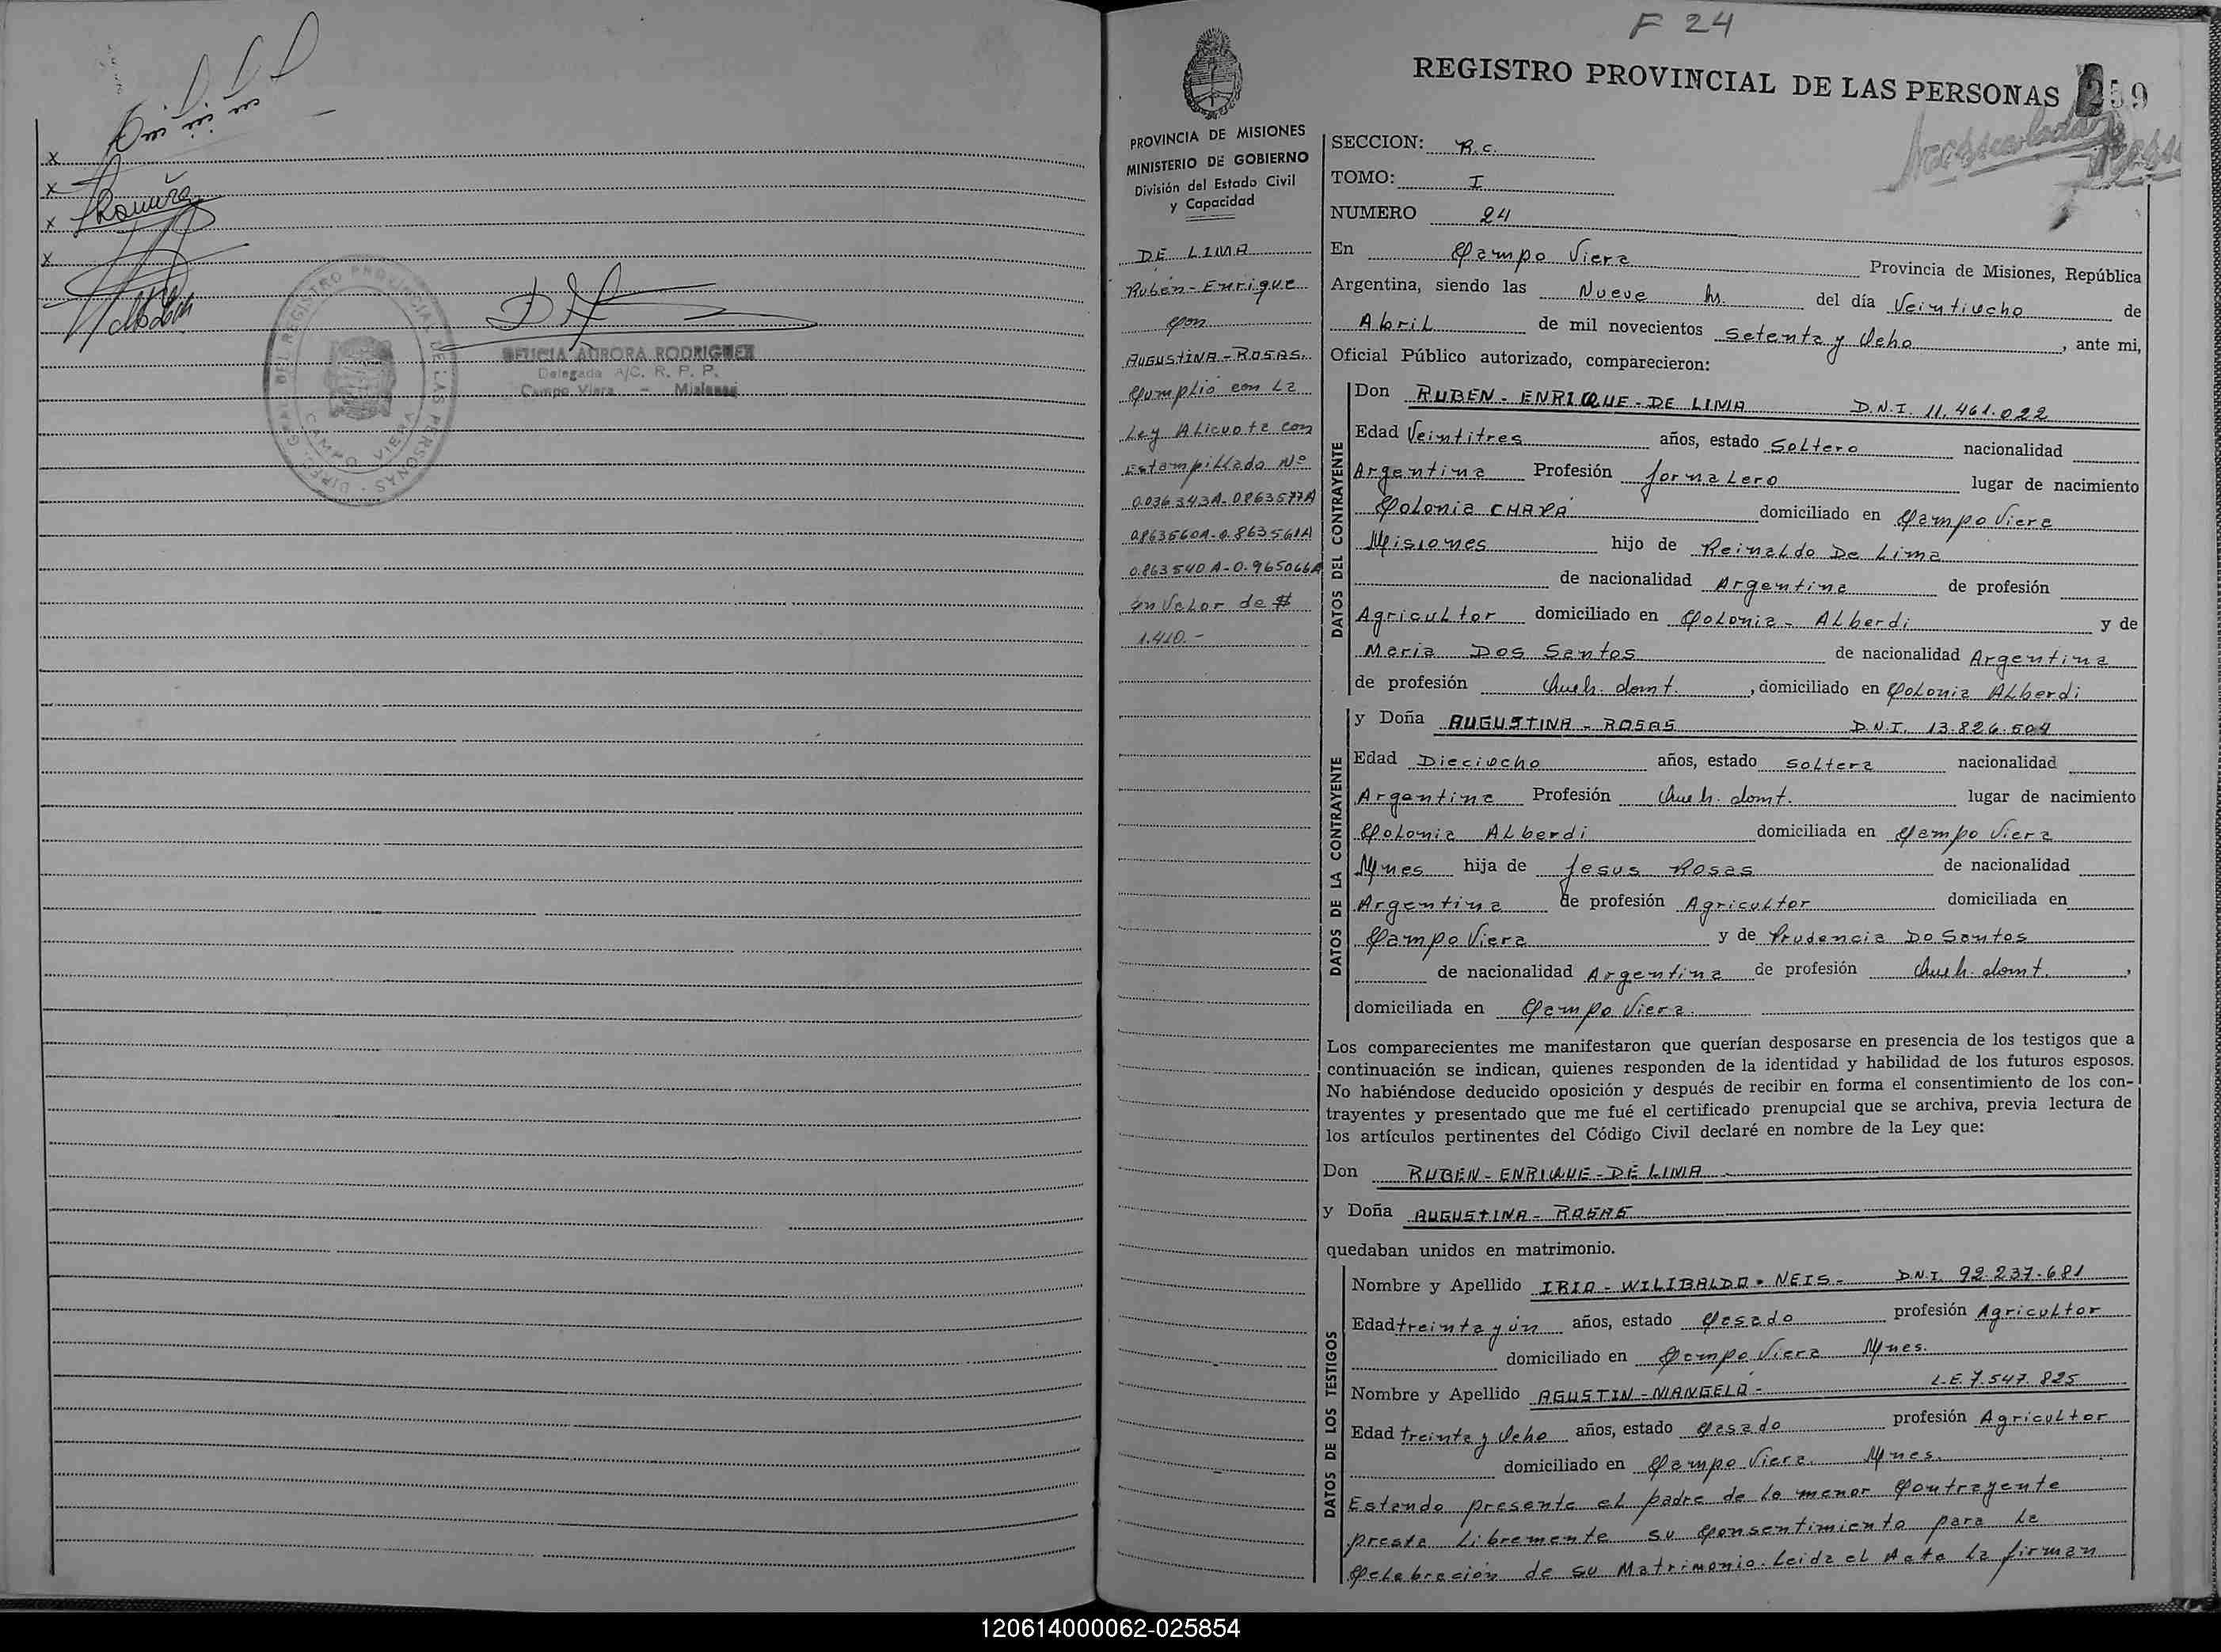 FELICIA AURORA RODRIGUEZ
Delegada A/C. R. P. P.
Campo Viera - Misiones
DIREC. GRAL. DEL REGISTRO PROVINCIAL DE LAS PERSONAS
CAMPO VIERA
F 24
REGISTRO PROVINCIAL DE LAS PERSONAS 259
PROVINCIA DE MISIONES
MINISTERIO DE GOBIERNO
División del Estado Civil
y Capacidad
DE LIMA
Rubén-Enrique
Con
AUGUSTINA-ROSAS.
Cumplió con La
Ley Alicuota con
Estampillado Nº
0.036343A-0863577A
0.863560A-0.863561A
0.863540A-0.965066A
en Valor de $
1.410.-
SECCION: R.C.
TOMO: I
NUMERO 24
En Campo Viera Provincia de Misiones, República
Argentina, siendo las Nueve hs. del día Veintiocho de
Abril de mil novecientos setenta y Ocho, ante mi,
Oficial Público autorizado, comparecieron:
DATOS DEL CONTRAYENTE
Don RUBEN-ENRIQUE-DE LIMA D.N.I. 11.461.022
Edad Veintitres años, estado Soltero nacionalidad
Argentina Profesión Jornalero lugar de nacimiento
Colonia CHAPÁ domiciliado en Campo Viera
Misiones hijo de Reinaldo De Lima
de nacionalidad Argentina de profesión
Agricultor domiciliado en Colonia - Alberdi y de
Maria Dos Santos de nacionalidad Argentina
de profesión Queh. domt., domiciliado en Colonia Alberdi
DATOS DE LA CONTRAYENTE
y Doña AUGUSTINA-ROSAS D.N.I. 13.826.504
Edad Dieciocho años, estado Soltera nacionalidad
Argentina Profesión Queh. domt. lugar de nacimiento
Colonia Alberdi domiciliada en Campo Viera
Mnes hija de Jesus Rosas de nacionalidad
Argentina de profesión Agricultor domiciliada en
Campo Viera y de Prudencia Do Santos
de nacionalidad Argentina de profesión Queh. domt.,
domiciliada en Campo Viera.
Los comparecientes me manifestaron que querían desposarse en presencia de los testigos que a
continuación se indican, quienes responden de la identidad y habilidad de los futuros esposos.
No habiéndose deducido oposición y después de recibir en forma el consentimiento de los con-
trayentes y presentado que me fué el certificado prenupcial que se archiva, previa lectura de
los artículos pertinentes del Código Civil declaré en nombre de la Ley que:
Don RUBEN-ENRIQUE-DE LIMA
y Doña AUGUSTINA-ROSAS
quedaban unidos en matrimonio.
DATOS DE LOS TESTIGOS
Nombre y Apellido IRIO-WILIBALDO-NEIS- D.N.I. 92.237.681
Edad treinta y ún años, estado Casado profesión Agricultor
domiciliado en Campo Viera Mnes.
Nombre y Apellido AGUSTIN-MANGELO- L.E. 7.547.825
Edad treinta y Ocho años, estado Casado profesión Agricultor
domiciliado en Campo Viera. Mnes.
Estando presente el padre de la menor Contrayente
presta Libremente su Consentimiento para la
Celebración de su Matrimonio. Leida el Acta La firman
120614000062-025854